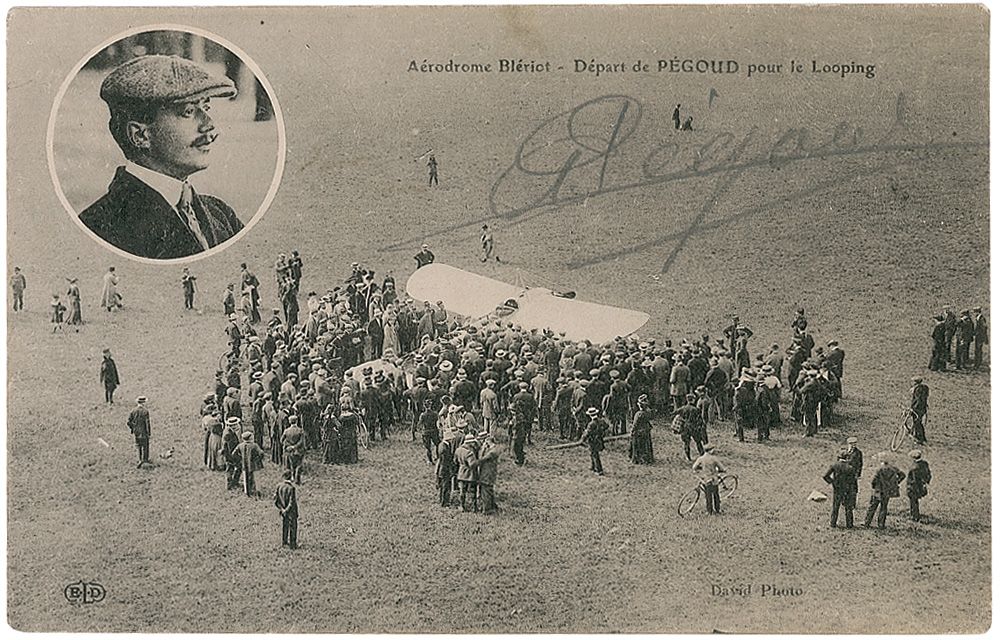 Aérodrome Blériot - Départ de PÉGOUD pour le Looping
Pégoud
ELD
David Photo